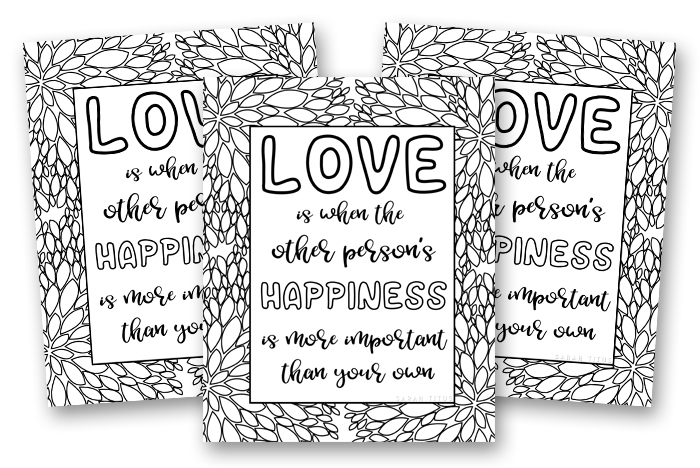 LOVE
is when the
other person's
HAPPINESS
is more important
than your own
SARAH TITUS
LOV
is when
other per
HAPPIN
is more im
than you
OVE
when the
person's
PINESS
important
your own
SARAH TITUS